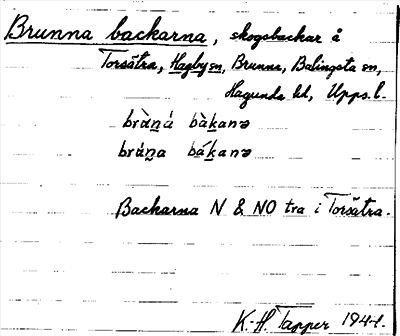 Brunna backarna, skogsbackar å
Torsätra, Hagby sn, Brunna, Balingsta sn,
Hagunda hd, Upps. l.
bràn̲á bàk̲anə
brán̲a bák̲anə
Backarna N & NO tra i Torsätra.
K.-H. Tapper 1944.